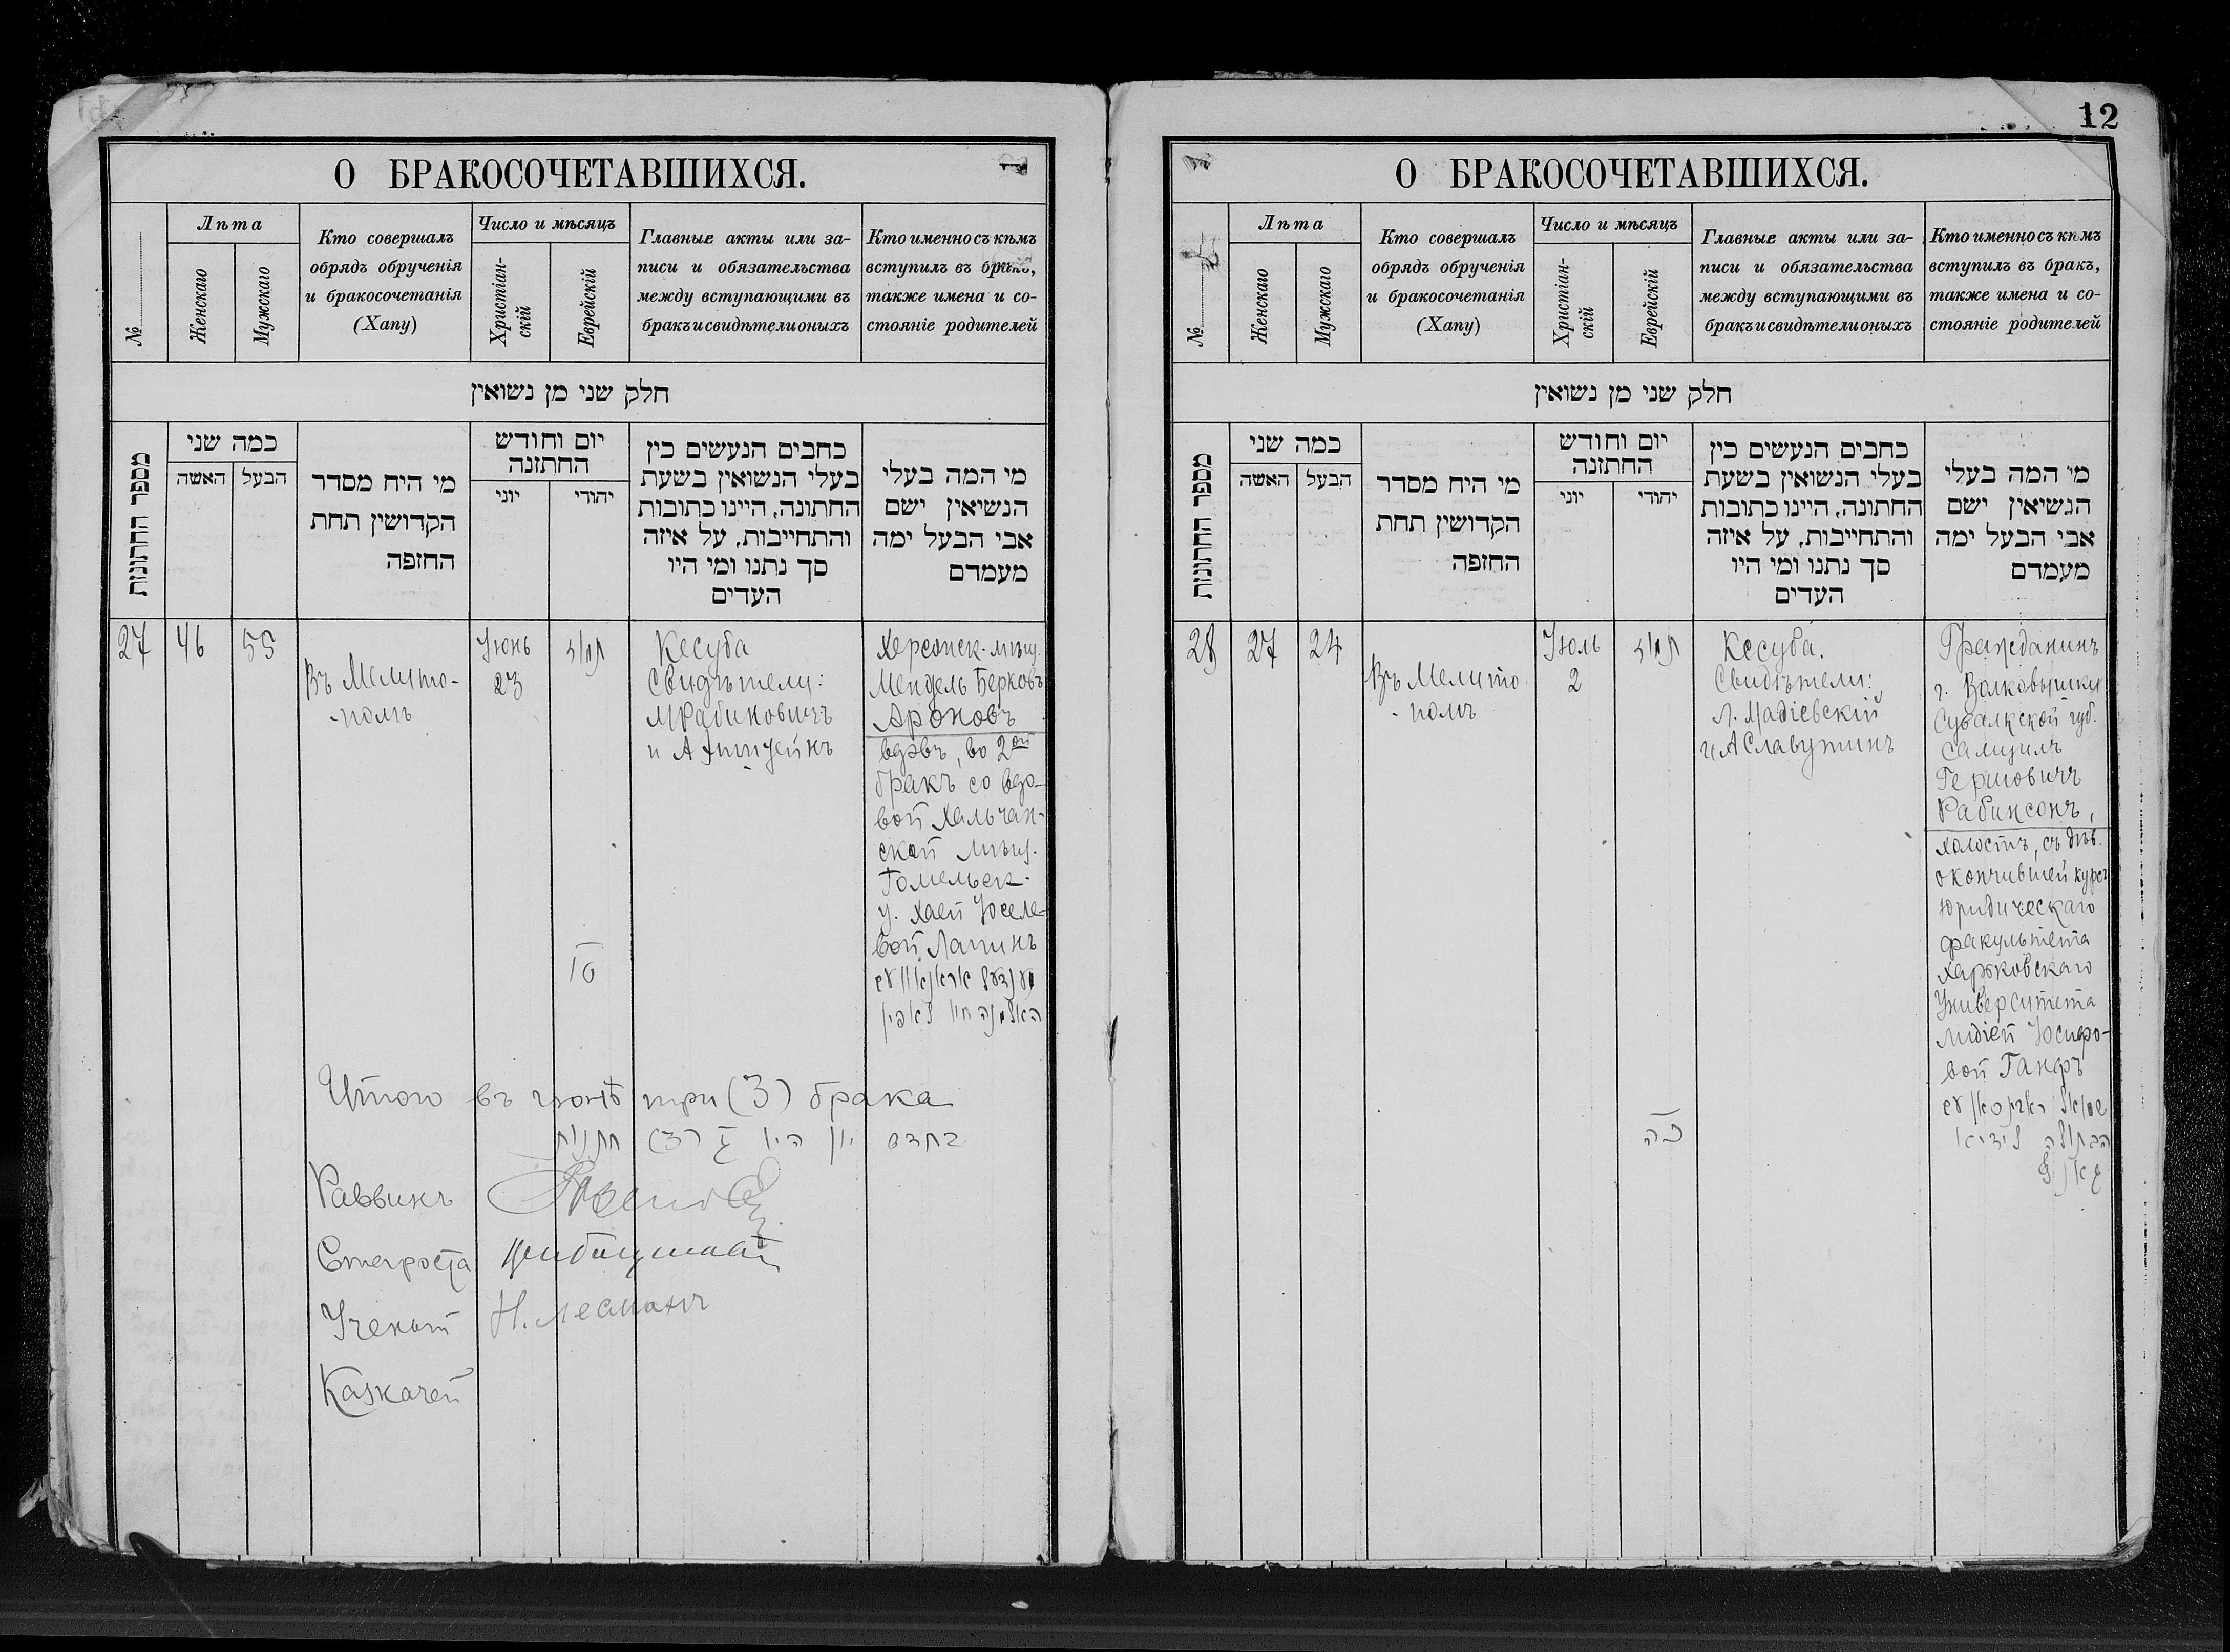 О БРАКОСОЧЕТАВШИХСЯ.
№
Лѣта
Женскаго
Мужскаго
Кто совершалъ
обрядъ обрученія
и бракосочетанія
(Хапу)
Число и мѣсяцъ
Христіан-
скій
Еврейскій
Главные акты или за-
писи и обязательства
между вступающими въ
бракъ и свидѣтели оныхъ
Кто именно съ кѣмъ
вступилъ въ бракъ,
также имена и со-
стояніе родителей
חלק שני מן נשואין
מספר החתונות
כמה שני
האשה
הבעל
מי היח מסדר
הקדושין תחת
החזפה
יום וחודש
החתזנה
יוני
יהודי
כחבים הנעשים כין
בעלי הנשואין בשעת
החתונה, היינו כתובות
והתחייבות, על איזה
סך נתנו ומי היו
העדים
מי המה בעלי
הנשיאין ישם
אבי הבעל ימה
מעמדם
27
46
55
Въ Мелито-
-полѣ
Іюнь
23
תמוז
טו
Кесуба
Свидѣтели:
М Рабиновичъ
и А
Херсонск. мѣщ.
Мендель Берковъ
Ароновъ
вдовъ, во 2ой
бракъ со вдо-
вой Хальчан-
ской мѣщ.
Гомельск.
у. Хаей Юселе-
вой Лапинъ
האלמנה חיו לאפין
Итого въ іюнѣ три (3) брака
בחדש יון היו ג (3) חתנות
Раввинъ
Староста
Ученый Н. Лесманъ
Казначей
12
О БРАКОСОЧЕТАВШИХСЯ.
№
Лѣта
Женскаго
Мужскаго
Кто совершалъ
обрядъ обрученія
и бракосочетанія
(Хапу)
Число и мѣсяцъ
Христіан-
скій
Еврейскій
Главные акты или за-
писи и обязательства
между вступающими въ
бракъ и свидѣтели оныхъ
Кто именно съ кѣмъ
вступилъ въ бракъ,
также имена и со-
стояніе родителей
חלק שני מן נשואין
מספר החתונות
כמה שני
האשה
הבעל
מי היח מסדר
הקדושין תחת
החזפה
יום וחודש
החתזנה
יוני
יהודי
כחבים הנעשים כין
בעלי הנשואין בשעת
החתונה, היינו כתובות
והתחייבות, על איזה
סך נתנו ומי היו
העדים
מי המה בעלי
הנשיאין ישם
אבי הבעל ימה
מעמדם
28
27
24
Въ Мелито
-полѣ
Іюль
2
תמוז
כה
Кесуба.
Свидѣтели:
Л. Мадіевскій
и А Славутинъ
Гражданинъ
г. Волковышки
Сувалкской губ.
Самуилъ
Гершовичъ
Рабинсонъ,
холостъ, съ дѣв.
окончившей курсъ
Юридическаго
факультета
Харьковскаго
Университета
Лидіей Юсифо-
вой Ганфъ
שמואל ראבינסאן עם
הבתולה לידיא
גאנף